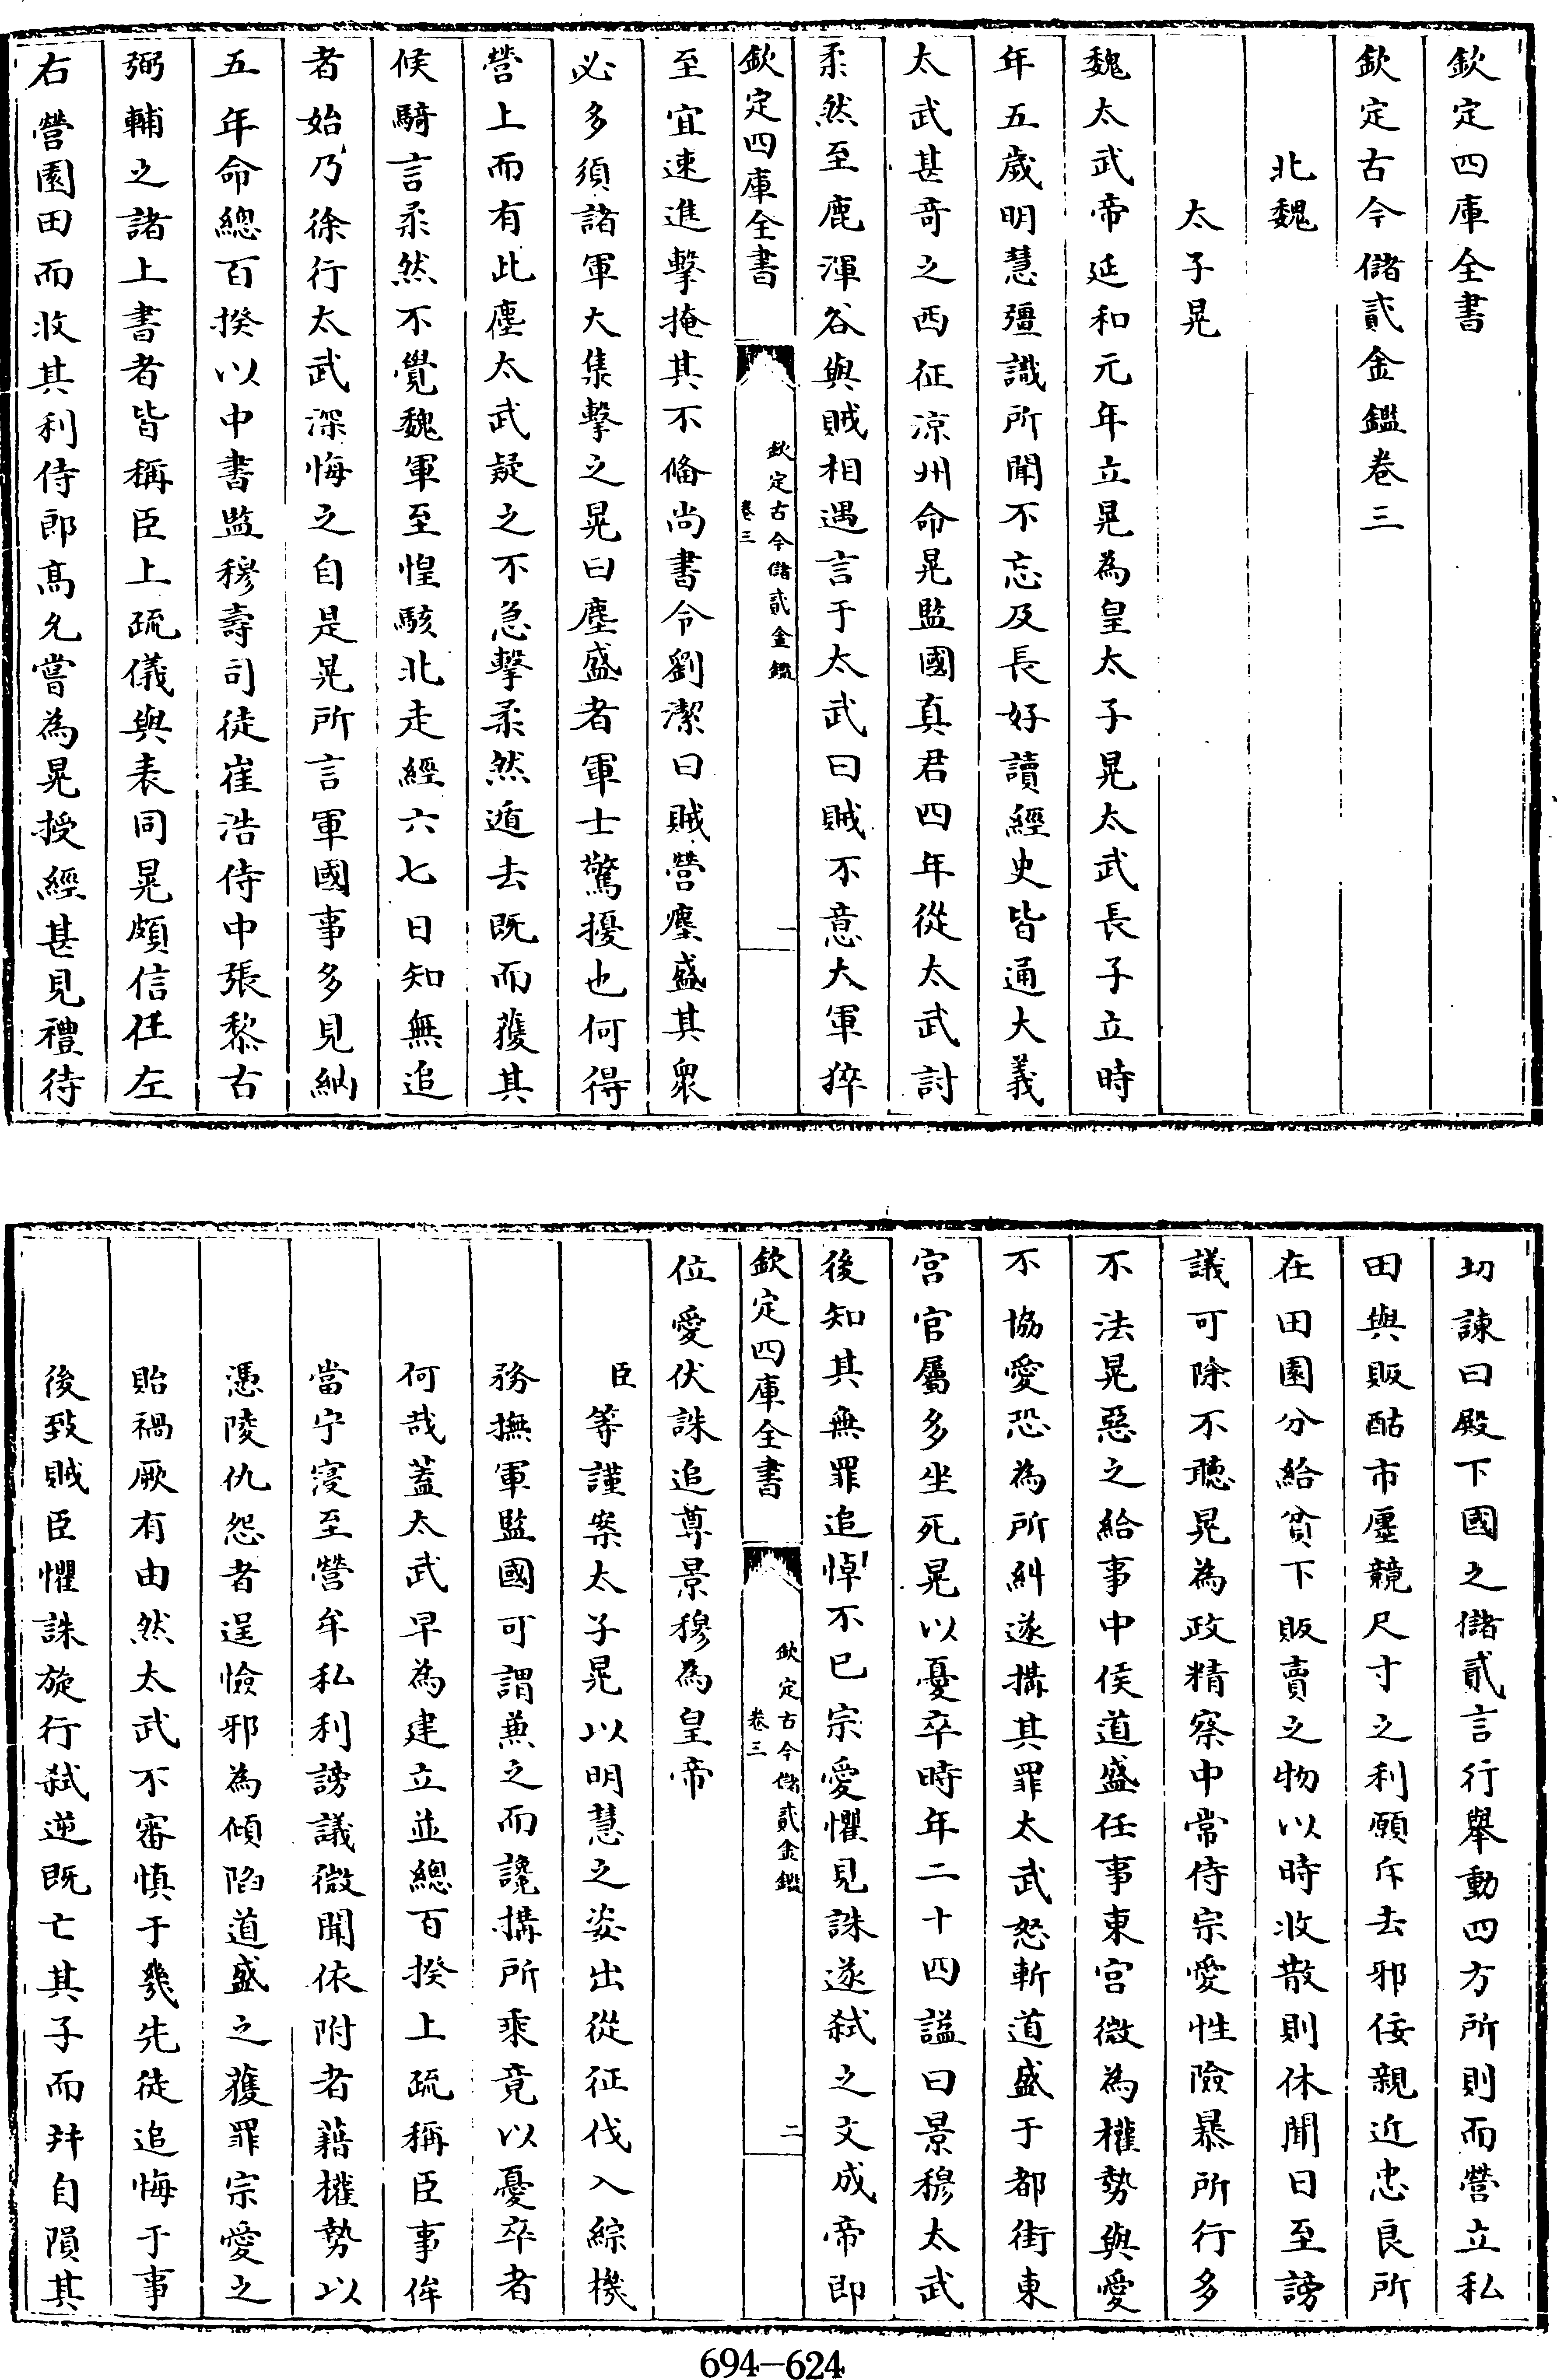 欽定四庫全書
欽定古今儲貳金鑑卷三
北魏
太子晃
魏太武帝延和元年立晃為皇太子晃太武長子立時
年五歲明慧彊識所聞不忘及長好讀經史皆通大義
太武甚竒之西征涼州命晃監國真君四年從太武討
柔然至鹿渾谷與賊相遇言于太武曰賊不意大軍猝
欽定四庫全書
欽定古今儲貳金鑑
卷三
一
至宜速進擊掩其不俻尚書令劉潔曰賊營塵盛其衆
必多須諸軍大集擊之晃曰塵盛者軍士驚擾也何得
營上而有此塵太武疑之不急擊柔然遁去既而獲其
候騎言柔然不覺魏軍至惶駭北走經六七日知無追
者始乃徐行太武深悔之自是晃所言軍國事多見納
五年命總百揆以中書監穆壽司徒崔浩侍中張黎古
弼輔之諸上書者皆稱臣上疏儀與表同晃頗信任左
右營園田而收其利侍郎髙允嘗為晃授經甚見禮待
切諫曰殿下國之儲貳言行舉動四方所則而營立私
田與販酤市廛競尺寸之利願斥去邪佞親近忠良所
在田園分給貧下販賣之物以時收散則休聞日至謗
議可除不聽晃為政精察中常侍宗愛性險暴所行多
不法晃惡之給事中侯道盛任事東宮微為權勢與愛
不協愛恐為所糾遂搆其罪太武怒斬道盛于都街東
宮官屬多坐死晃以憂卒時年二十四諡曰景穆太武
後知其無罪追悼不已宗愛懼見誅遂弑之文成帝即
欽定四庫全書
欽定古今儲貳金鑑
卷三
二
位愛伏誅追尊景穆為皇帝
臣等謹案太子晃以明慧之姿出從征伐入綜機
務撫軍監國可謂兼之而讒搆所乘竟以憂卒者
何哉蓋太武早為建立並總百揆上疏稱臣事侔
當宁寖至營牟私利謗議微聞依附者藉權勢以
憑陵仇怨者逞憸邪為傾陷道盛之獲罪宗愛之
貽禍厥有由然太武不審慎于幾先徒追悔于事
後致賊臣懼誅旋行弑逆既亡其子而并自隕其
694-624